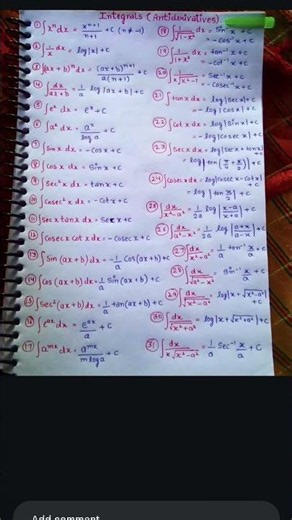 Integrals (Antiderivatives)
① ∫xⁿ dx = xⁿ⁺¹/n+1 + c (n ≠ -1)
② ∫1/x dx = log|x| + c
③ ∫(ax+b)ⁿ dx = (ax+b)ⁿ⁺¹/a(n+1) + c
④ ∫dx/ax+b = 1/a log|ax+b| + c
⑤ ∫eˣ dx = eˣ + c
⑥ ∫aˣ dx = aˣ/log a + c
⑦ ∫sinx dx = -cosx + c
⑧ ∫cosx dx = sinx + c
⑨ ∫sec²x dx = tanx + c
⑩ ∫cosec²x dx = -cotx + c
⑪ ∫secx tanx dx = secx + c
⑫ ∫cosecx cotx dx = -cosecx + c
⑬ ∫sin(ax+b) dx = -1/a cos(ax+b) + c
⑭ ∫cos(ax+b) dx = 1/a sin(ax+b) + c
⑮ ∫sec²(ax+b) dx = 1/a tan(ax+b) + c
⑯ ∫eᵃˣ dx = eᵃˣ/a + c
⑰ ∫aᵐˣ dx = aᵐˣ/mloga + c
⑱ ∫1/√1-x² dx = sin⁻¹x + c
= -cos⁻¹x + c
⑲ ∫1/1+x² dx = tan⁻¹x + c
= -cot⁻¹x + c
⑳ ∫1/x√x²-1 = sec⁻¹x + c
= -cosec⁻¹x + c
㉑ ∫tanx dx = log|secx| + c
= -log|cosx| + c
㉒ ∫cotx dx = log|sinx| + c
= -log|cosecx| + c
㉓ ∫secx dx = log|secx + tanx|
= log|tan(π/4 + x/2)| + c
㉔ ∫cosecx dx = log|cosecx - cotx| + c
= log|tan x/2| + c
㉕ ∫dx/x²-a² = 1/2a log|x-a/x+a| + c
㉖ ∫dx/a²-x² = 1/2a log|a+x/a-x| + c
㉗ ∫dx/x²+a² = 1/a tan⁻¹ x/a + c
㉘ ∫dx/√a²-x² = sin⁻¹ x/a + c
㉙ ∫dx/√x²-a² = log|x+√x²-a²| + c
㉚ ∫dx/√x²+a² = log|x+√x²+a²| + c
㉛ ∫dx/x√x²-a² = 1/a sec⁻¹ x/a + c
Add comment